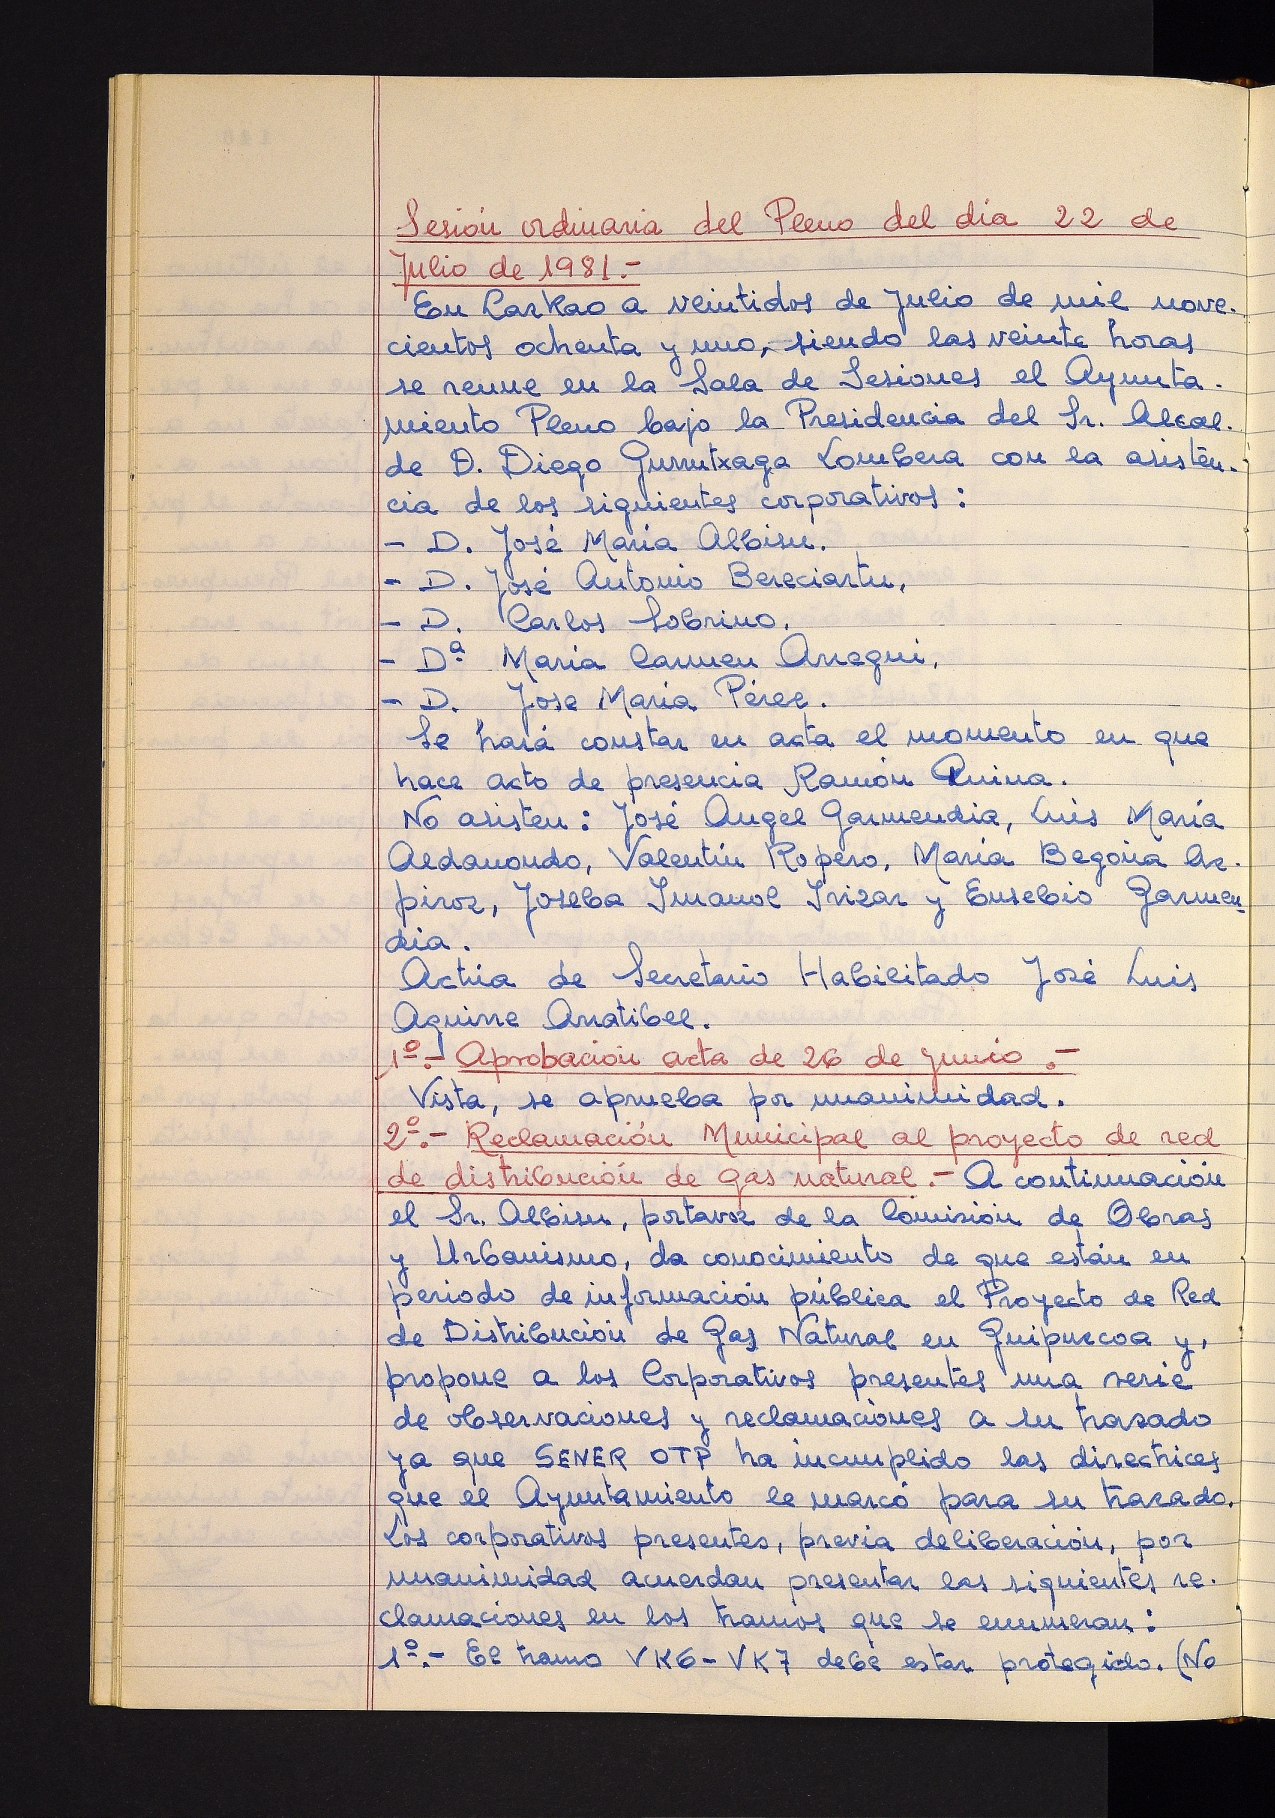 Sesión ordinaria del Pleno del día 22 de
Julio de 1981.-
En Lazkao a veintidos de Julio de mil nove-
cientos ochenta y uno, siendo las veinte horas
se reune en la Sala de Sesiones el Ayunta-
miento Pleno bajo la Presidencia del Sr. Alcal-
de D. Diego Gurrutxaga Lombera con la asisten-
cia de los siguientes corporativos:
- D. José María Albisu.
- D. José Antonio Bereciartu,
- D. Carlos Sobrino,
- Dª María Carmen Arregui,
- D. Jose María Pérez.
Se hará constar en acta el momento en que
hace acto de presencia Ramón
No asisten: José Angel Garmendia, Luis María
Aldanondo, Valentín Ropero, María Begoña Az-
piroz, Joseba Imanol Irizar y Eusebio Garmen-
dia.
Actúa de Secretario Habilitado José Luis
Aguirre Arratibel.
1º.- Aprobación acta de 26 de junio.-
Vista, se aprueba por unanimidad.
2º.- Reclamación Municipal al proyecto de red
de distribución de gas natural.- A continuación
el Sr. Albisu, portavoz de la Comisión de Obras
y Urbanismo, da conocimiento de que están en
periodo de información pública el Proyecto de Red
de Distribución de Gas Natural en Guipuzcoa y,
propone a los Corporativos presentes una serie
de observaciones y reclamaciones a su trazado
ya que SENER OTP ha incumplido las directrices
que el Ayuntamiento le marcó para su trazado.
Los corporativos presentes, previa deliberación, por
unanimidad acuerdan presentar las siguientes re-
clamaciones en los tramos que se enumeran:
1º.- El tramo VK6-VK7 debe estar protegido. (No